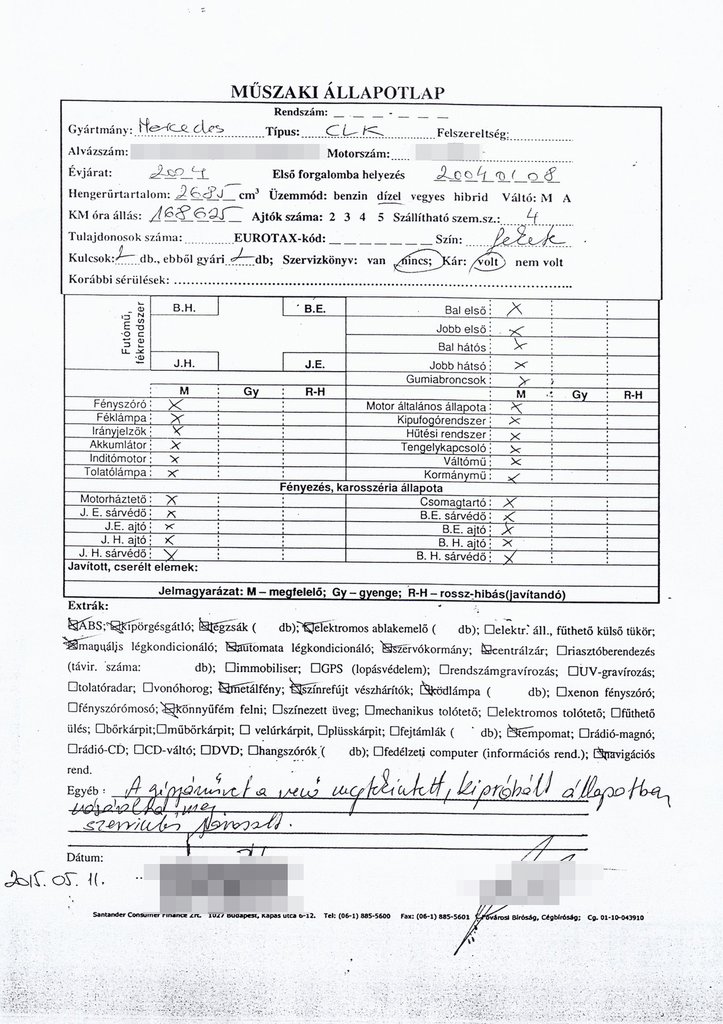 MŰSZAKI ÁLLAPOTLAP
Rendszám: _ _ _ _ _ _ _
Gyártmány: Mercedes Típus: CLK Felszereltség:
Alvázszám: Motorszám:
Évjárat: 2004 Első forgalomba helyezés 2004 01 08
Hengerűrtartalom: 2685 cm³ Üzemmód: benzin dízel vegyes hibrid Váltó: M A
KM óra állás: 168625 Ajtók száma: 2 3 4 5 Szállítható szem.sz.: 4
Tulajdonosok száma: EUROTAX-kód: _ _ _ _ _ _ _ Szín: fekete
Kulcsok: 1 db., ebből gyári 1 db; Szervizkönyv: van nincs; Kár: volt nem volt
Korábbi sérülések:
Futómű, fékrendszer
B.H. B.E. Bal első: X
Jobb első: X
Bal hátós X
J.H. J.E. Jobb hátsó: X
Gumiabroncsok: X
M Gy R-H M Gy R-H
Fényszóró X Motor általános állapota X
Féklámpa X Kipufogórendszer X
Irányjelzők X Hűtési rendszer X
Akkumlátor X Tengelykapcsoló X
Inditómotor X Váltómű X
Tolatólámpa X Kormánymű X
Fényezés, karosszéria állapota
Motorháztető X Csomagtartó X
J. E. sárvédő X B.E. sárvédő X
J.E. ajtó X B.E. ajtó X
J. H. ajtó X B. H. ajtó X
J. H. sárvédő X B. H. sárvédő X
Javított, cserélt elemek:
Jelmagyarázat: M – megfelelő; Gy – gyenge; R-H – rossz-hibás(javítandó)
Extrák:
☒ABS; ☒kipörgésgátló; ☒légzsák ( db); ☒elektromos ablakemelő ( db); □elektr. áll., fűthető külső tükör;
☒maguáljs légkondicionáló; ☒automata légkondicionáló; ☒szervókormány; ☒centrálzár; □riasztóberendezés
(távir. száma: db); □immobiliser; □GPS (lopásvédelem); □rendszámgravírozás; □UV-gravírozás;
□tolatóradar; □vonóhorog; ☒metálfény; ☒színrefújt vészhárítók; ☒ködlámpa ( db); □xenon fényszóró;
□fényszórómosó; ☒könnyűfém felni; □színezett üveg; □mechanikus tolótető; □elektromos tolótető; □fűthető
ülés; □bőrkárpit;□műbőrkárpit; □ velúrkárpit; □plüsskárpit; □fejtámlák ( db); ☒tempomat; □rádió-magnó;
□rádió-CD; □CD-váltó; □DVD; □hangszórók ( db); □fedélzeti computer (információs rend.); ☒navigációs
rend.
Egyéb: A gépjárművet a vevő megtekintett, kipróbált állapotban
vásárolta meg
szervizelés javasolt.
Dátum:
2015. 05. 11.
Santander Consumer Finance Zrt. 1027 Budapest, Kapás utca 6-12. Tel: (06-1) 885-5600 Fax: (06-1) 885-5601 Fővárosi Bíróság, Cégbíróság; Cg. 01-10-043910